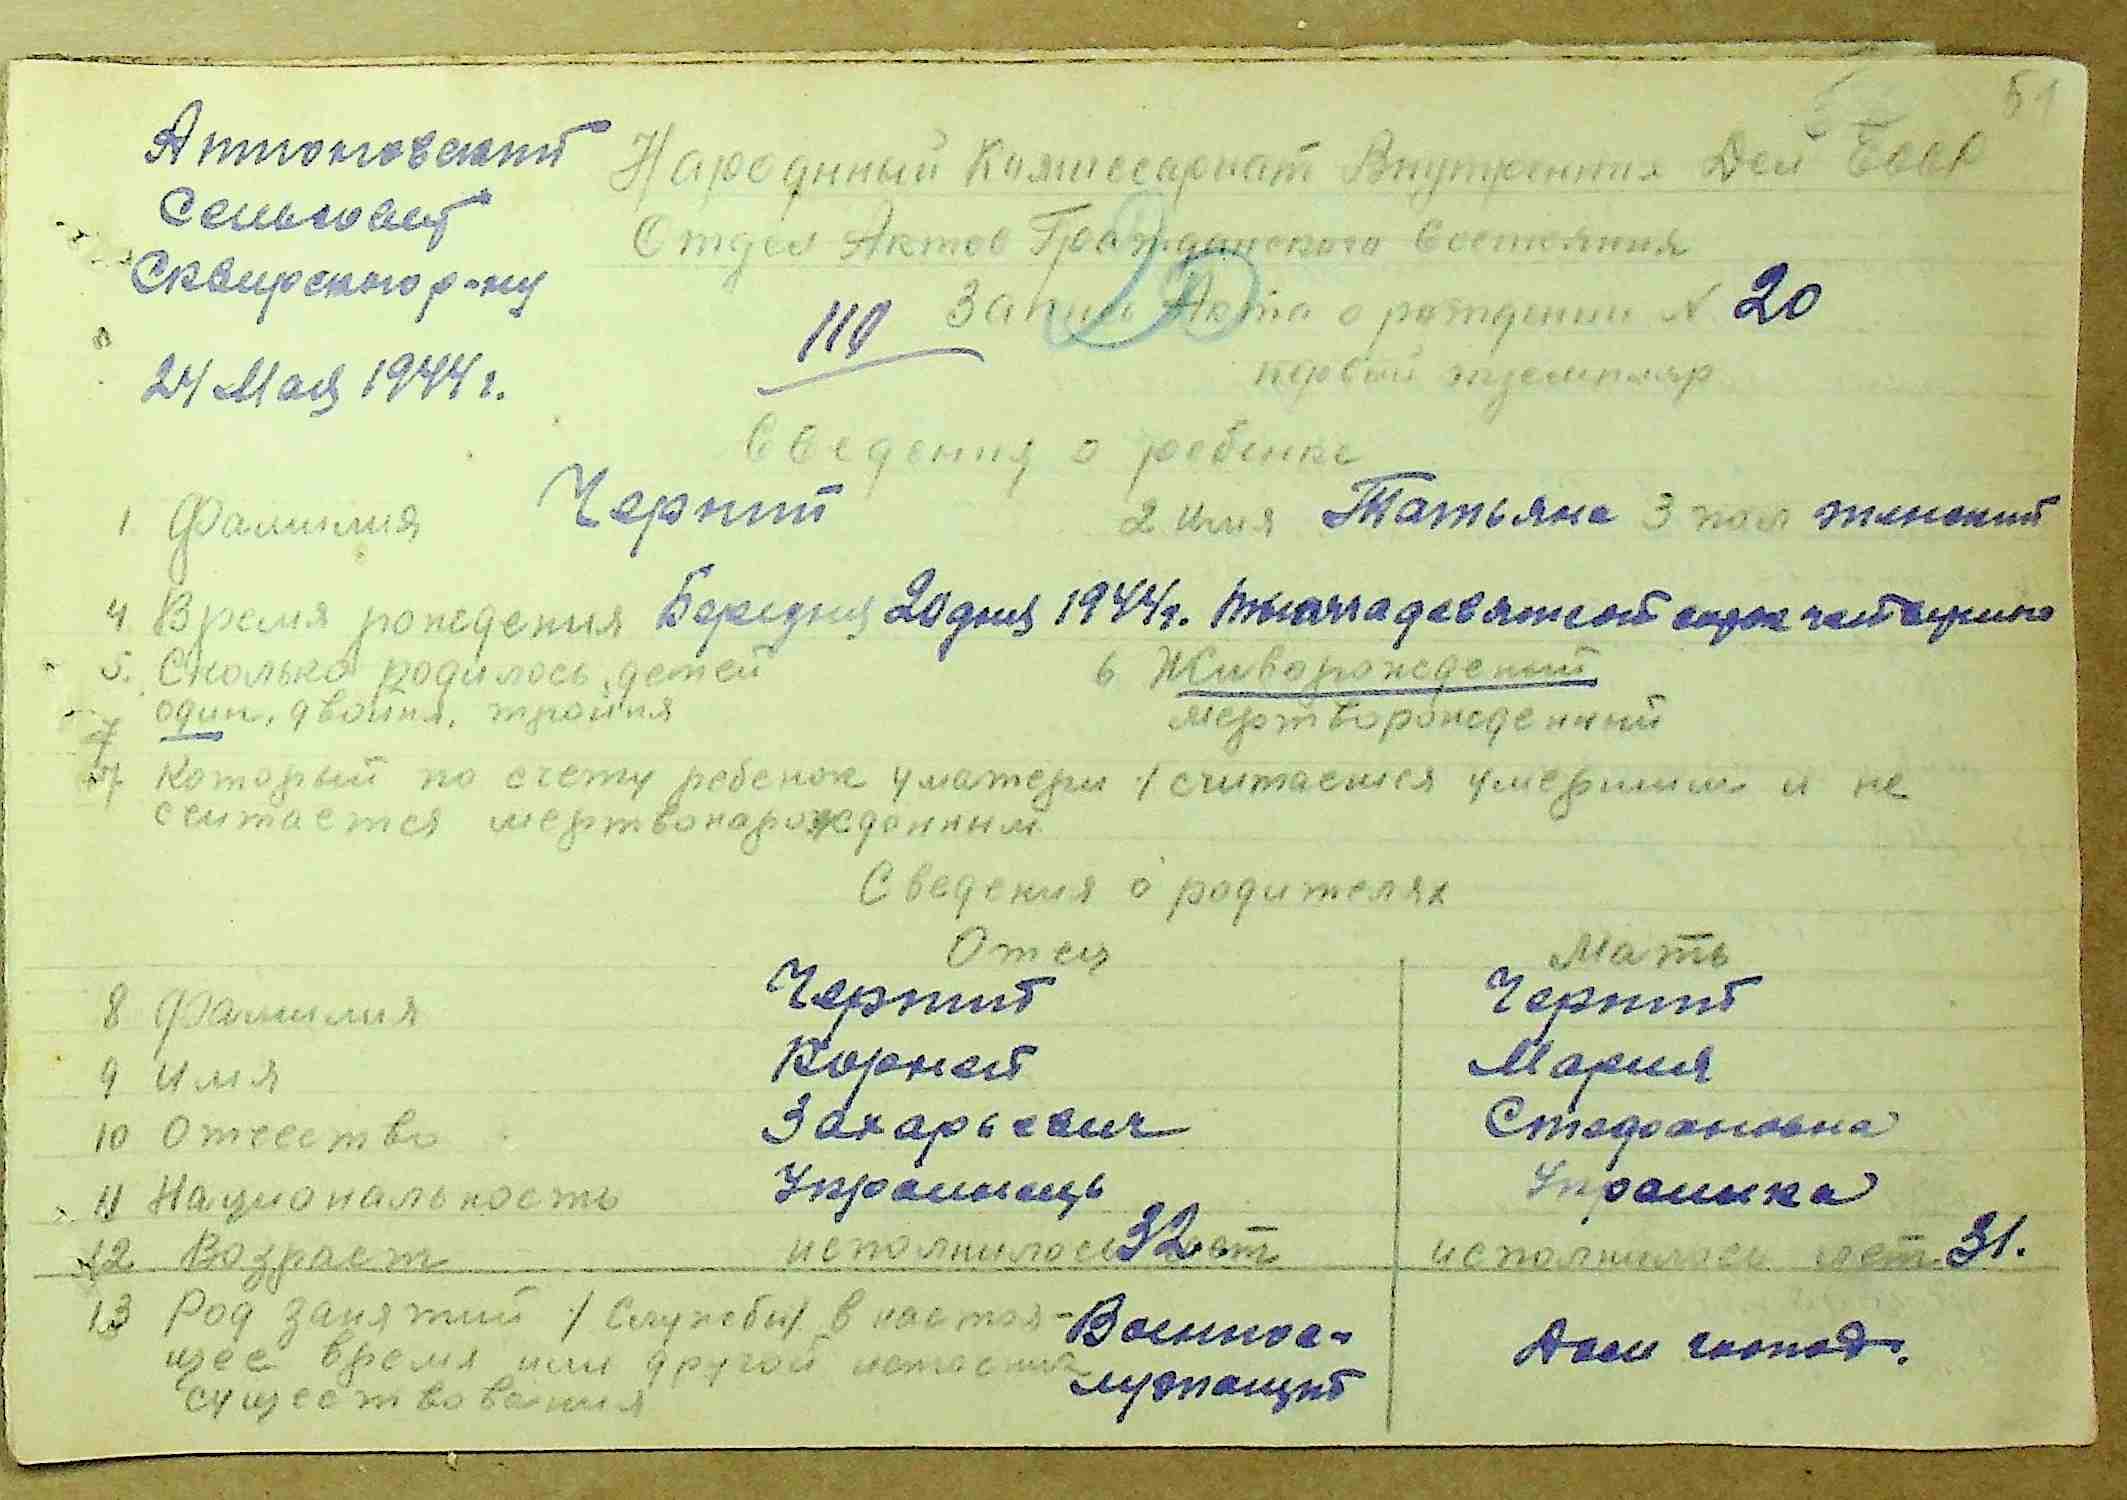 51
Антоновский
Сельсовет
Сквирского р-ну
24 Мая 1944 г.
Народнный Комиссариат Внутрення Дел СССР
Отдел Актов Гражданского Состояния
110 Запись Акта о рождении N 20
первый экземпляр
Сведения о ребенке
1 Фамилия Черний 2 Имя Татьяна 3 пол женский
4 Время рождения 20 дня 1944 г.
5. Сколько родилось детей 6 Живорожденый
один, двойня, тройня мертворожденный
7 Который по счету ребенок у матери / считается умершим и не
считается мертвонарожденным
Сведения о родителях
Отец Мать
8 Фамилия Черний Черний
9 Имя Корней Мария
10 Отчество Захарьевич Стефановна
11 Национальность Украинець Украинка
12 Возраст исполнилось 32 лет исполнилось лет 31.
13 Род занятий /Службы/ в настоя- Военнос-
щее время или другой источник лужащий Дом господ.
существования